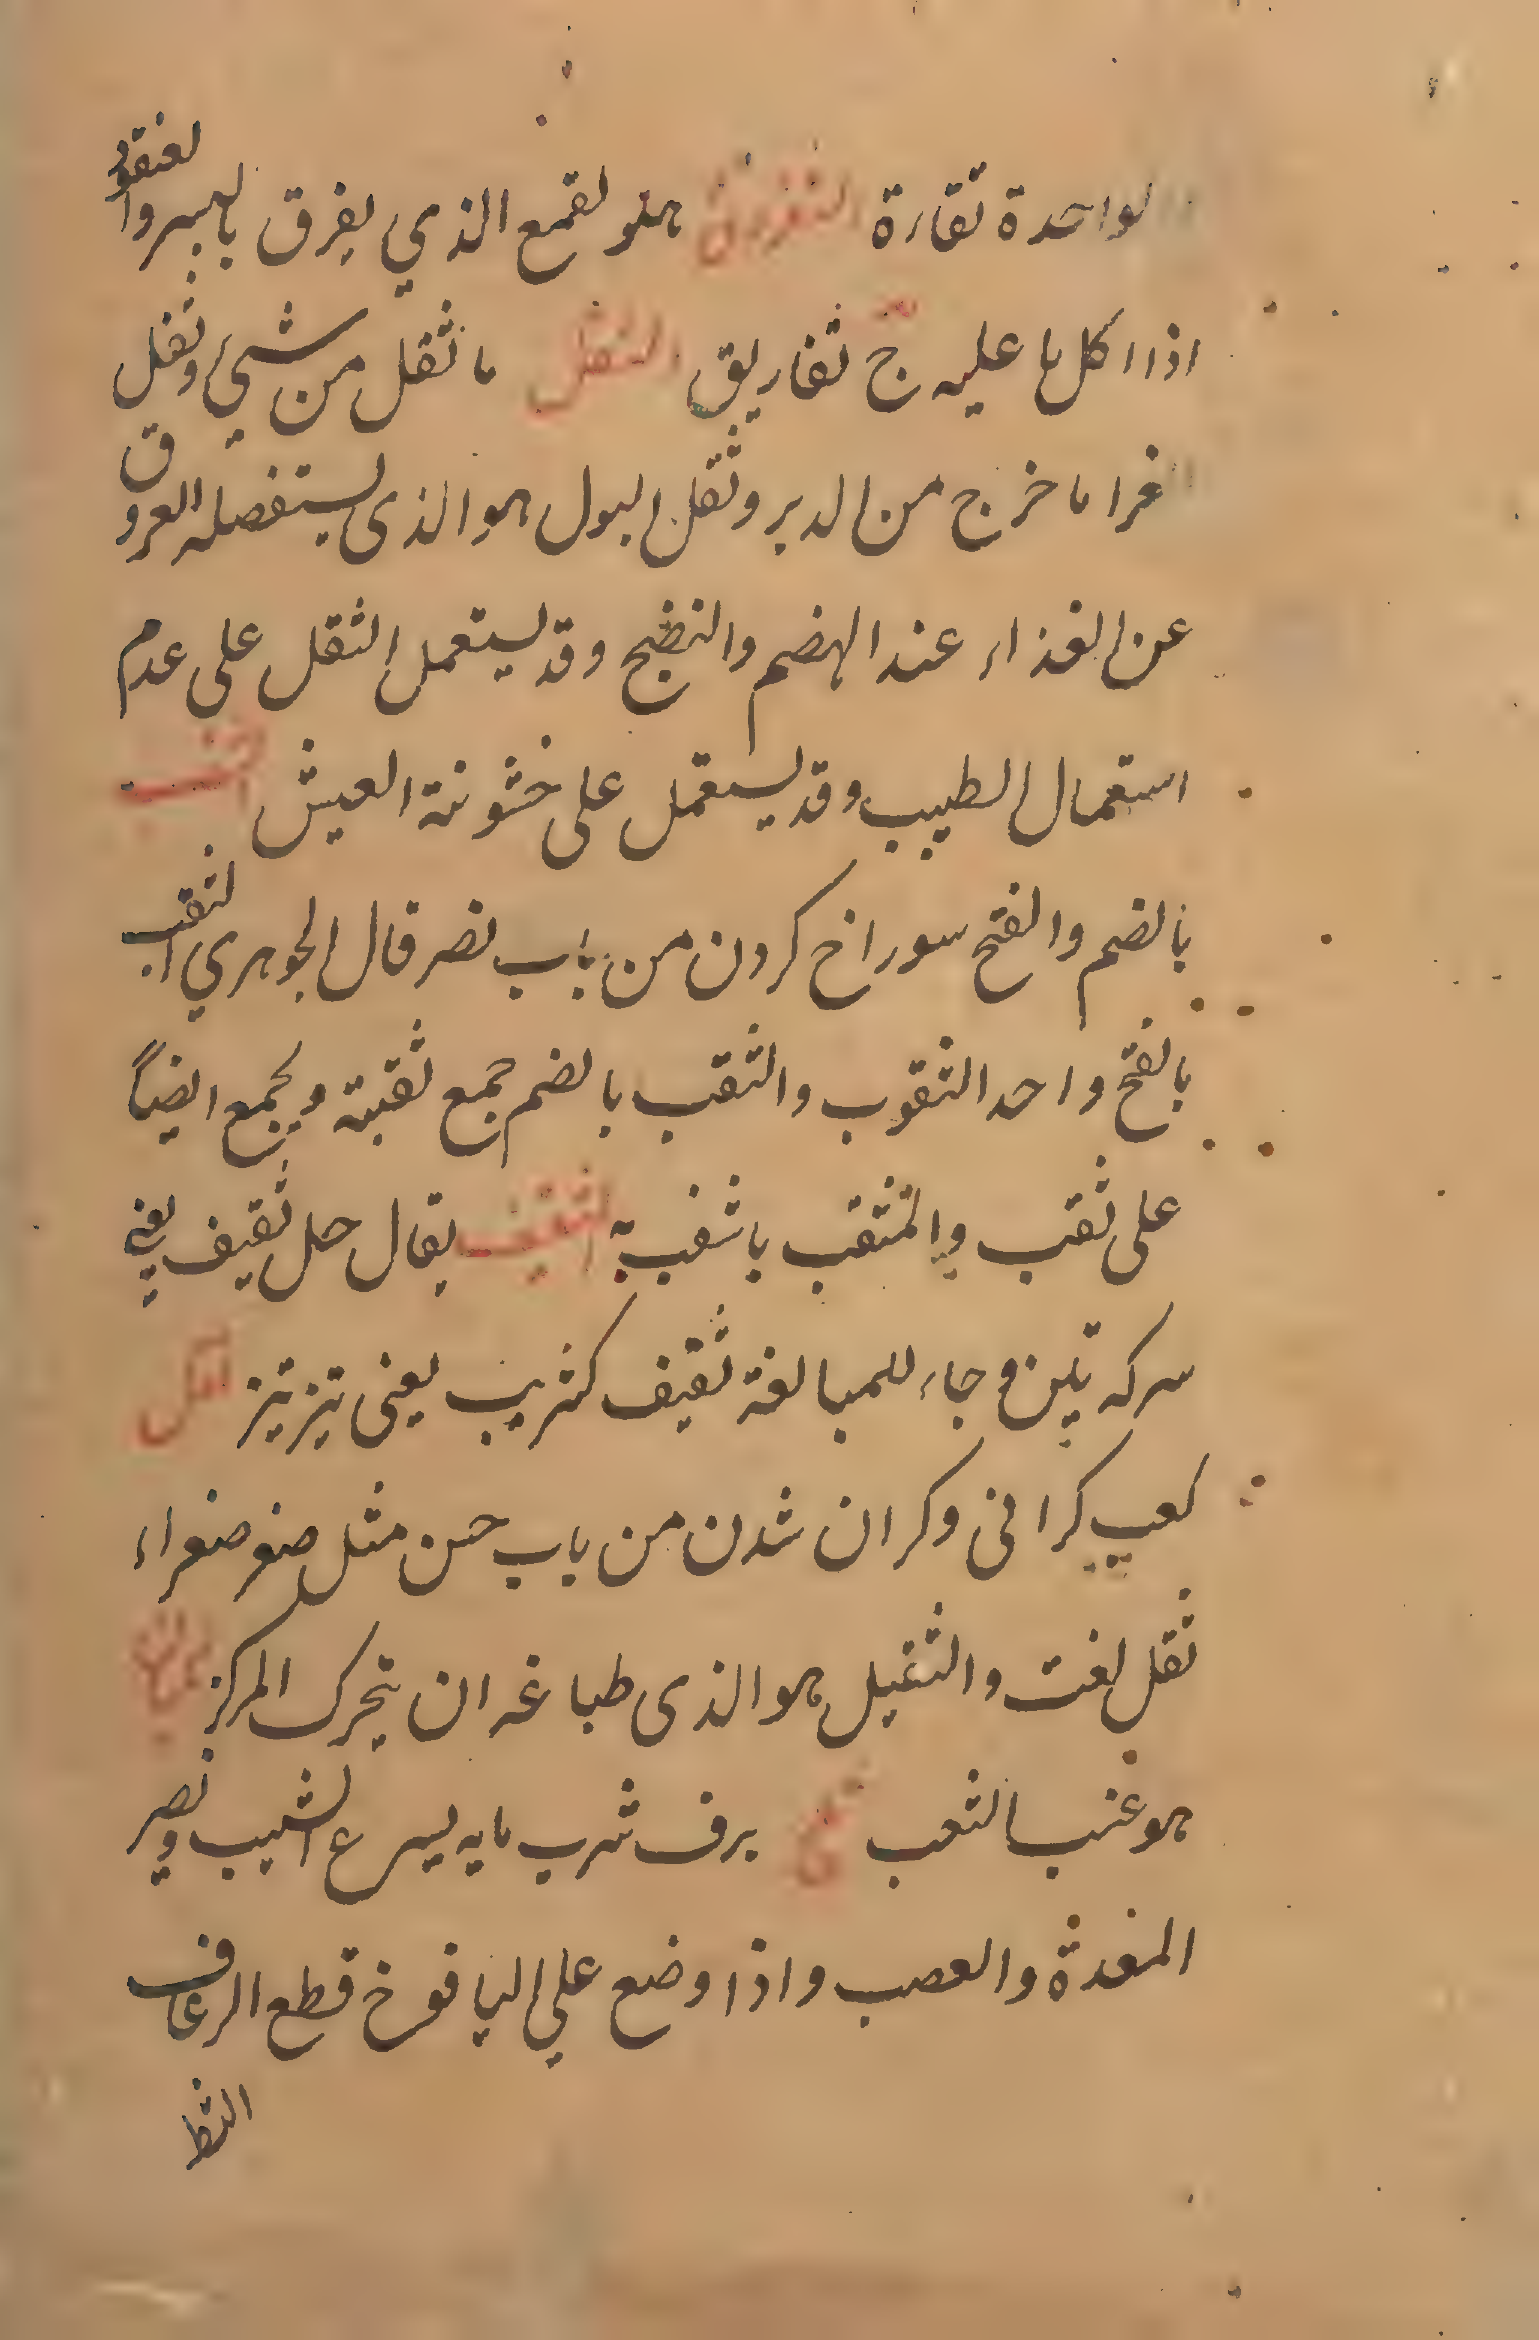 الواحدة ثفارة الثفروق هو لقمع الذي يفرق بالبسر والعنقود
اذا اكل ما عليه ج ثفاريق الثفل ما ثقل من شيء وثفل
الغرا ما خرج من الدبر وثفل البول هو الذى يستفصله العروق
عن الغذاء عند الهضم والنضج وقد يستعمل الثقل على عدم
استعمال الطيب وقد يستعمل على خشونة العيش الثقب
بالضم والفتح سوراخ كردن من باب نصر قال الجوهري الثقب
بالفتح واحد الثقوب والثقب بالضم جمع ثقبة ويجمع ايضاً
على ثقب والمثقب باثقب به الثقيف يقال خل ثقيف يعنى
سركه تيز وجاء للمبالغة ثقيف كثريب يعنى تيز تيز الثقل
كعب كرانى وكران شدن من باب حسن مثل صغر صغراء
ثقل لغت والثقيل هو الذى طباعه ان يتحرك المركز
هو عنب الثعب ثلج برف شرب مايه يسرع الشيب ويضر
المغدة والعصب واذا وضع على اليافوخ قطع الرعاف
الثط